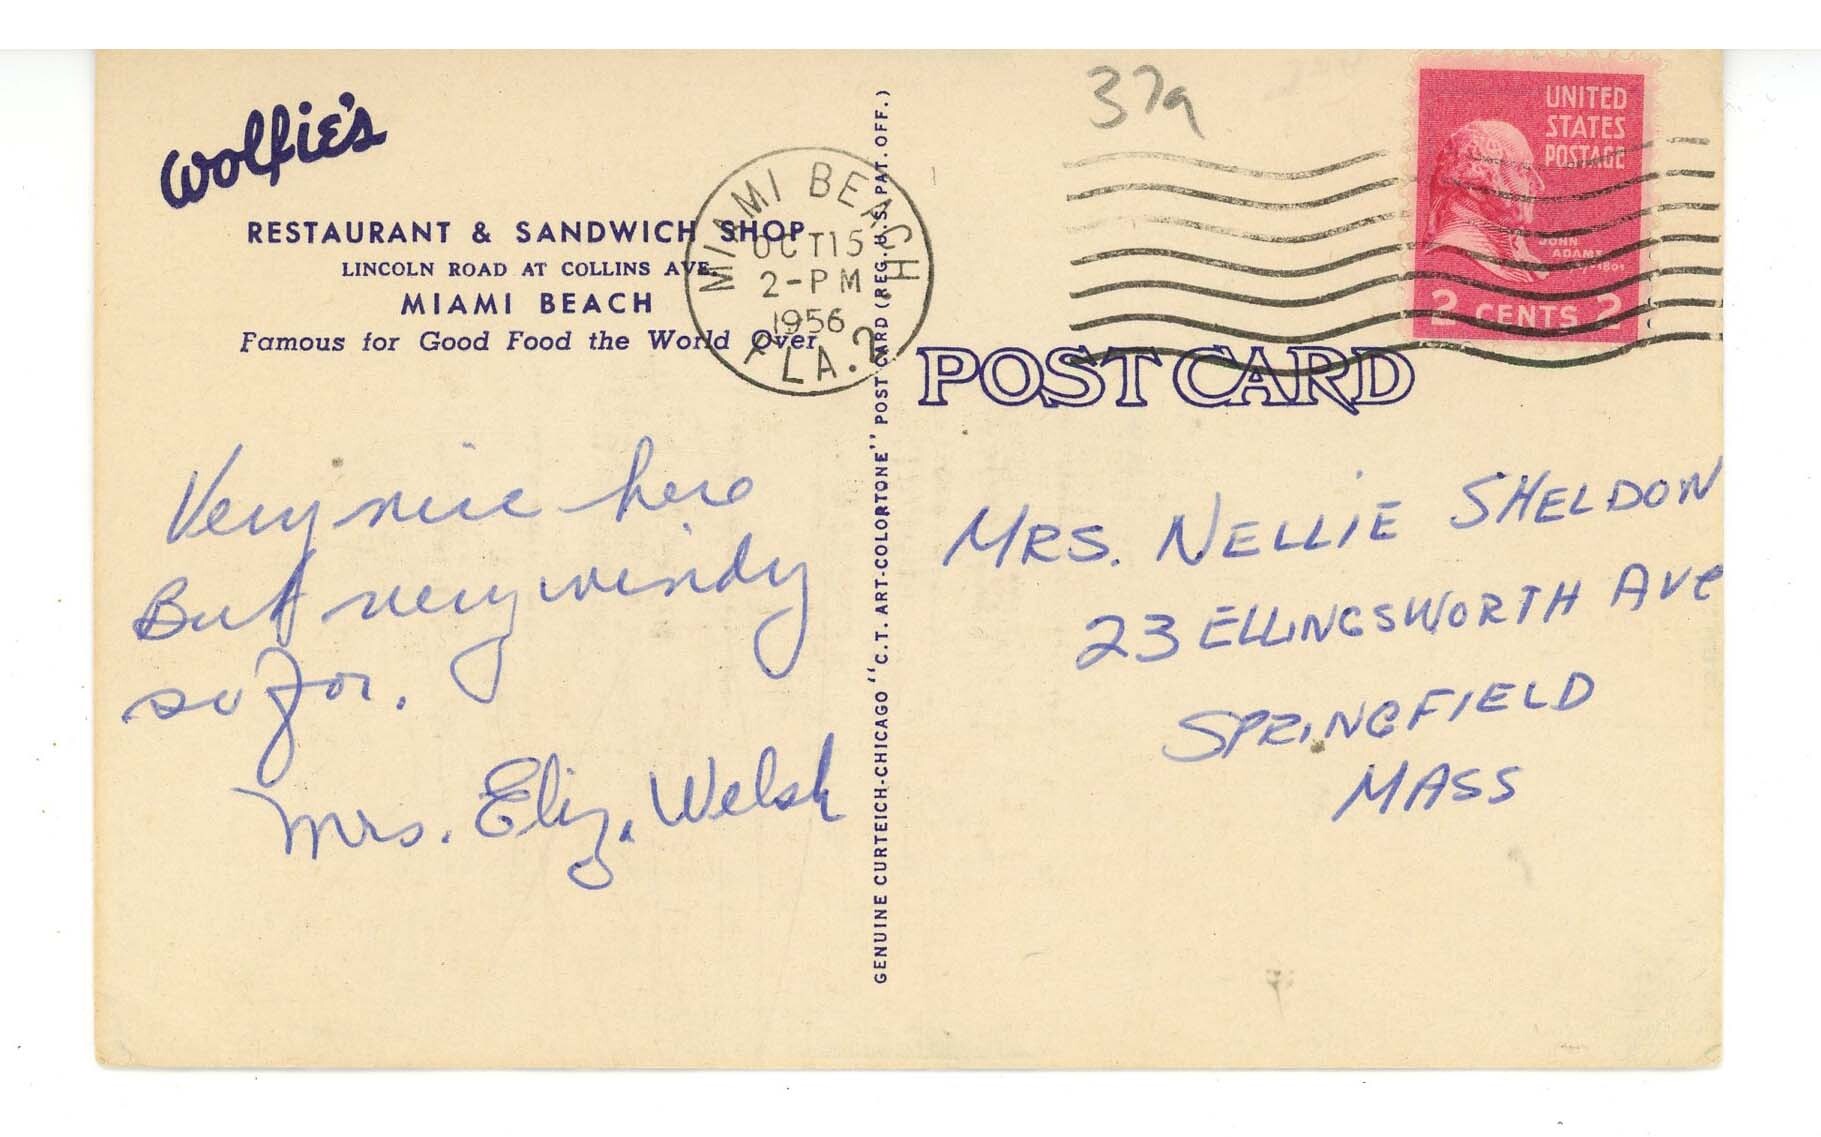 Wolfie's
RESTAURANT & SANDWICH SHOP
LINCOLN ROAD AT COLLINS AVE.
MIAMI BEACH
Famous for Good Food the World Over
MIAMI BEACH
OCT 15
2-PM
1956
FLA. 2
37a
UNITED
STATES
POSTAGE
JOHN
ADAMS
2 CENTS 2
POST CARD
GENUINE CURTEICH-CHICAGO "C.T. ART-COLORTONE" POST CARD (REG. U.S. PAT. OFF.)
Very nice here
But very windy
so far.
Mrs. Eliz. Welsh
MRS. NELLIE SHELDON
23 ELLINGSWORTH AVE
SPRINGFIELD
MASS